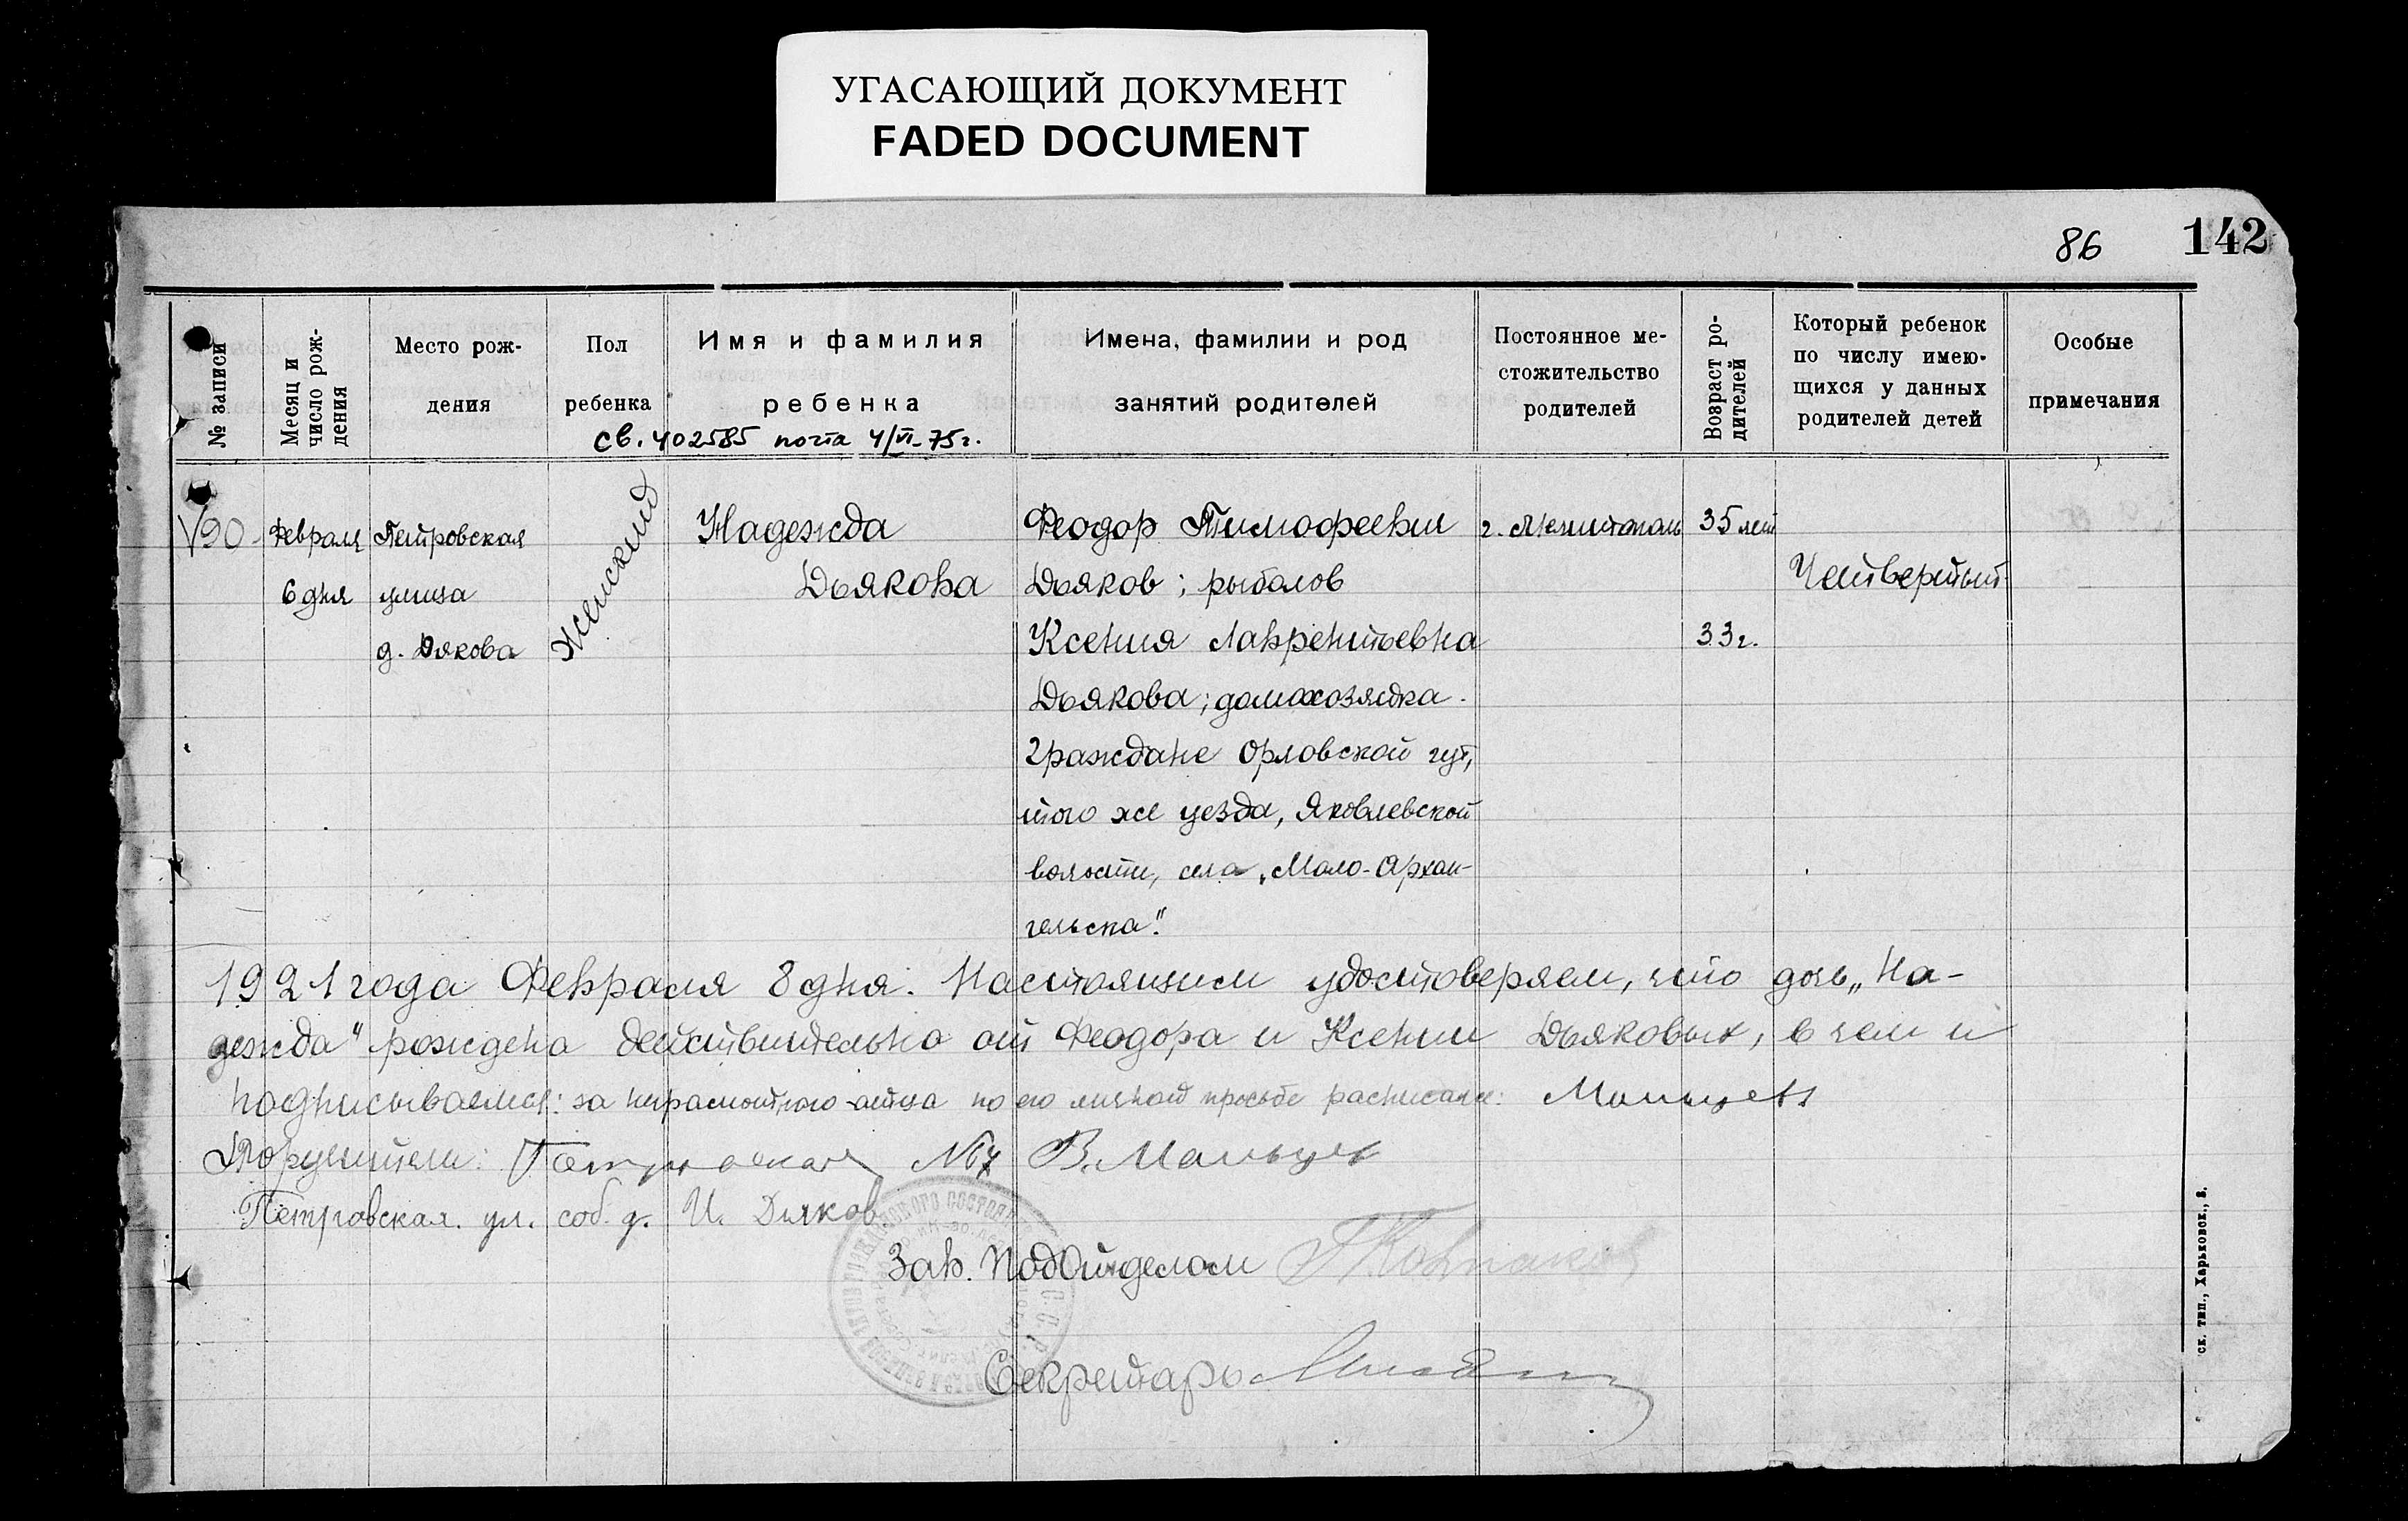 УГАСАЮЩИЙ ДОКУМЕНТ
FADED DOCUMENT
86 142
№ записи
Месяц и число рож-дения
Место рож-
дения
Пол
ребенка
Имя и фамилия
ребенка
Имена, фамилии и род
занятий родителей
Постоянное ме-
стожительство
родителей
Возраст ро-
дителей
Который ребенок
по числу имею-
щихся у данных
родителей детей
Особые
примечания
св. 402585 почта 4/VI-75г.
90
Февраля
6 дня
Петровская
улица
д. Дякова
Женский
Надежда
Дьякова
Феодор Тимофеевич
Дьяков; рыболов
Ксения Лаврентьевна
Дьякова; домохозяйка.
Граждане Орловской губ,
того же уезда, Яковлевской
волости, села „Мало-Архан-
гельска".
г. Мелитополь
35 лет
33г.
Четвертый
1921 года Февраля 8 дня. Настоящим удостоверяем, что дочь „На-
дежда" рождена действительно от Феодора и Ксении Дьяковых, в чем и
подписываемся: за неграмотного отца по его личной просьбе расписался: Мальцев
Поручители: Петровская №7 В. Мальцев
Петровская. ул. соб. д. И. Дяков
Зав. ПодОтделом
Секретарь
СК. ТИП., Харьковск., 8.